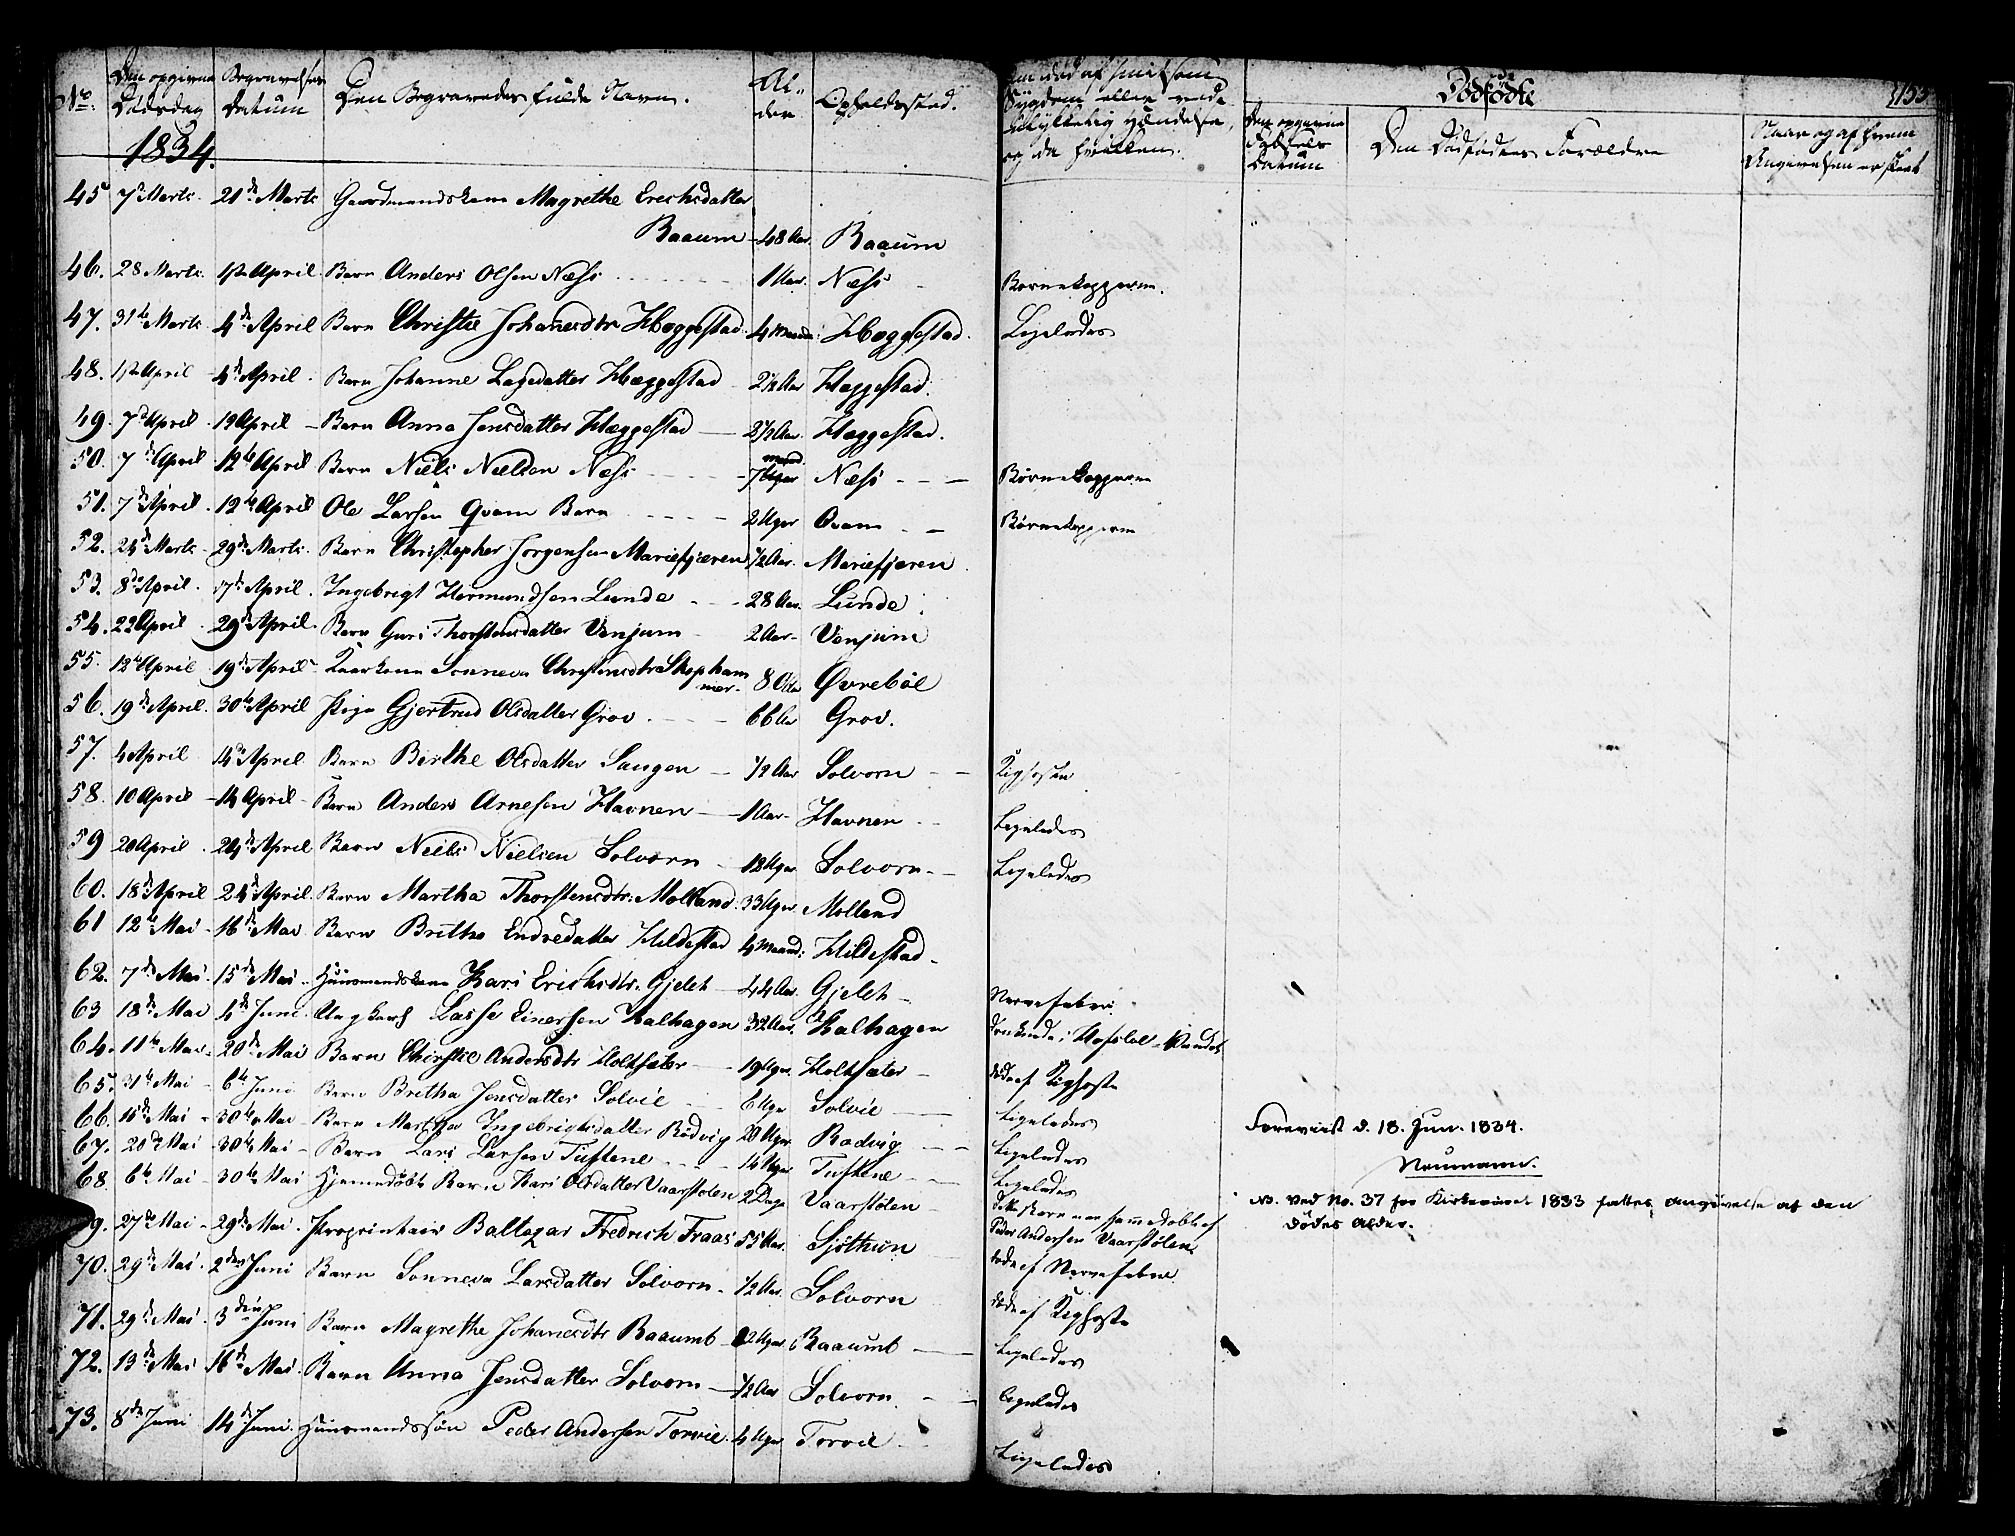 No. Den opgivne Dødsdag Begravelses Datum Den Begravedes fulde Navn. Al- der Opholdssted. død af smitsom Sygdom eller ved ulykkelig Hændelse, og da hvilken. Dødfødte 153
Den opgivne Fødsels Datum Den Dødfødtes Forældre Naar og af hvem Angivelsen er skeet
1834.
45 7de Marts. 21de Marts Gaardmandskone Magrethe Erichsdatter
Baaum 48 Aar. Baaum
46. 28 Marts. 1ste April Barn Anders Olsen Næss 1 Aar. Næss Børnekopperne.
47. 31te Marts 4de April Barn Christie Johanesdtr Hæggestad 4 Maaned: Hæggestad. Ligeledes
48. 1ste April 4de April. Barn Johanne Lagedatter Hæggestad 2½ Aar Haggestad.
49. 7de April. 19 April Barn Anna Jensdatter Hæggestad 2½ Aar. Hæggestad.
50. 7de April 12te April Barn Niels Nielsen Næss 7 Maand. Næss Børnekopperne
51. 7de April. 12te April Ole Larsen Qvam Barn 2 Uger Qvam Børnekopperne
52. 24de Marts 29de Marts. Barn Christopher Jørgensen Mariefjæren ½ Aar. Mariefjæren
53. 8de April. 17de April. Ingebrigt Hermundsen Lunde 28 Aar. Lunde
54. 22 April. 29de April. Barn Guri Thorstensdatter Venjum 2 Aar Venjum
55. 12te April 19de April Sonneva Christensdtr Skepham
mer. 80 Aar Øvrebøe
56. 19de April. 30te April Pige Gjertrud Olsdatter Grov 66 Aar Grov.
57. 4 April 14de April Barn Birthe Olsdatter Saugen ½ Aar Solvorn Kighosten
58. 10 April 14 April Barn Anders Arnesen Havnen 1 Aar Havnen Ligeledes
59 20 April. 24de April Barn Neils Nielsen Solvorn 12 Uger Solvorn Ligeledes
60. 18de April 24de April. Barn Martha Thorstensdtr: Molland. 33 Uger. Molland
61 12te Mai 16de Mai Barn Brithe Endredatter Hildestad 4 Maand: Hildestad
62. 7de Mai. 15de Mai. Huusmandskone Kari Erichsdtr. Gjelch 44 Aar. Gjelch Nervefeber.
63 18de Mai 4de Juni Ungkarl Lasse Einersen Kalhagen 32 Aar. Kalhagen druknede i Vandet
64. 11te Mai 20de Mai Barn Chirstie Andersdtr Holthæter 19 Uger. Holthæter døde af Kighoste
65. 31te Mai 6te Juni Barn Britha Jensdatter Solvie 6 Uger Solvie Ligeledes
66. 15de Mai 30te Mai Barn Martha Ingebrigtsdatter Rødvig 20 Uger. Rødvig Ligeledes
67. 20de Mai 30te Mai Barn Lars Larsen Tuftene 14 Uger Tuftene Ligeledes
Foreviist d. 18. Jun. 1834.
Neumann.
68. 6te Mai 30te Mai Hjemmedøbt Barn Kari Olsdatter Vaarstølen 2 Dage Vaarstølen dette Barn var hjemmedøbt af Peder Andersen Vaarstølen
NB. Ved No. 37 for Kirkeaaret 1833 fattes angivelse af den
Dødes Alder.
69. 27de Mai 29de Mai. Proprietair Baltazar Fredrich Fraas 55 Aar. Sjøthun døde af Nervefeber
70. 29de Mai. 2den Juni Barn Sonneva Larsdatter Solvorn ½ Aar. Solvorn døde af Kighoste
71. 29de Mai. 3die Juni Barn Magrethe Johanesdtr Baaumb 12 Uger Baaumb Ligeledes
72. 13de Mai 16de Mai. Barn Anna Jensdatter Solvorn ½ Aar Solvorn ligeledes
73. 8de Juni 14de Juni. Huusmandssøn Peder Andersen Torvie. 4 Uger Torvie Ligeledes